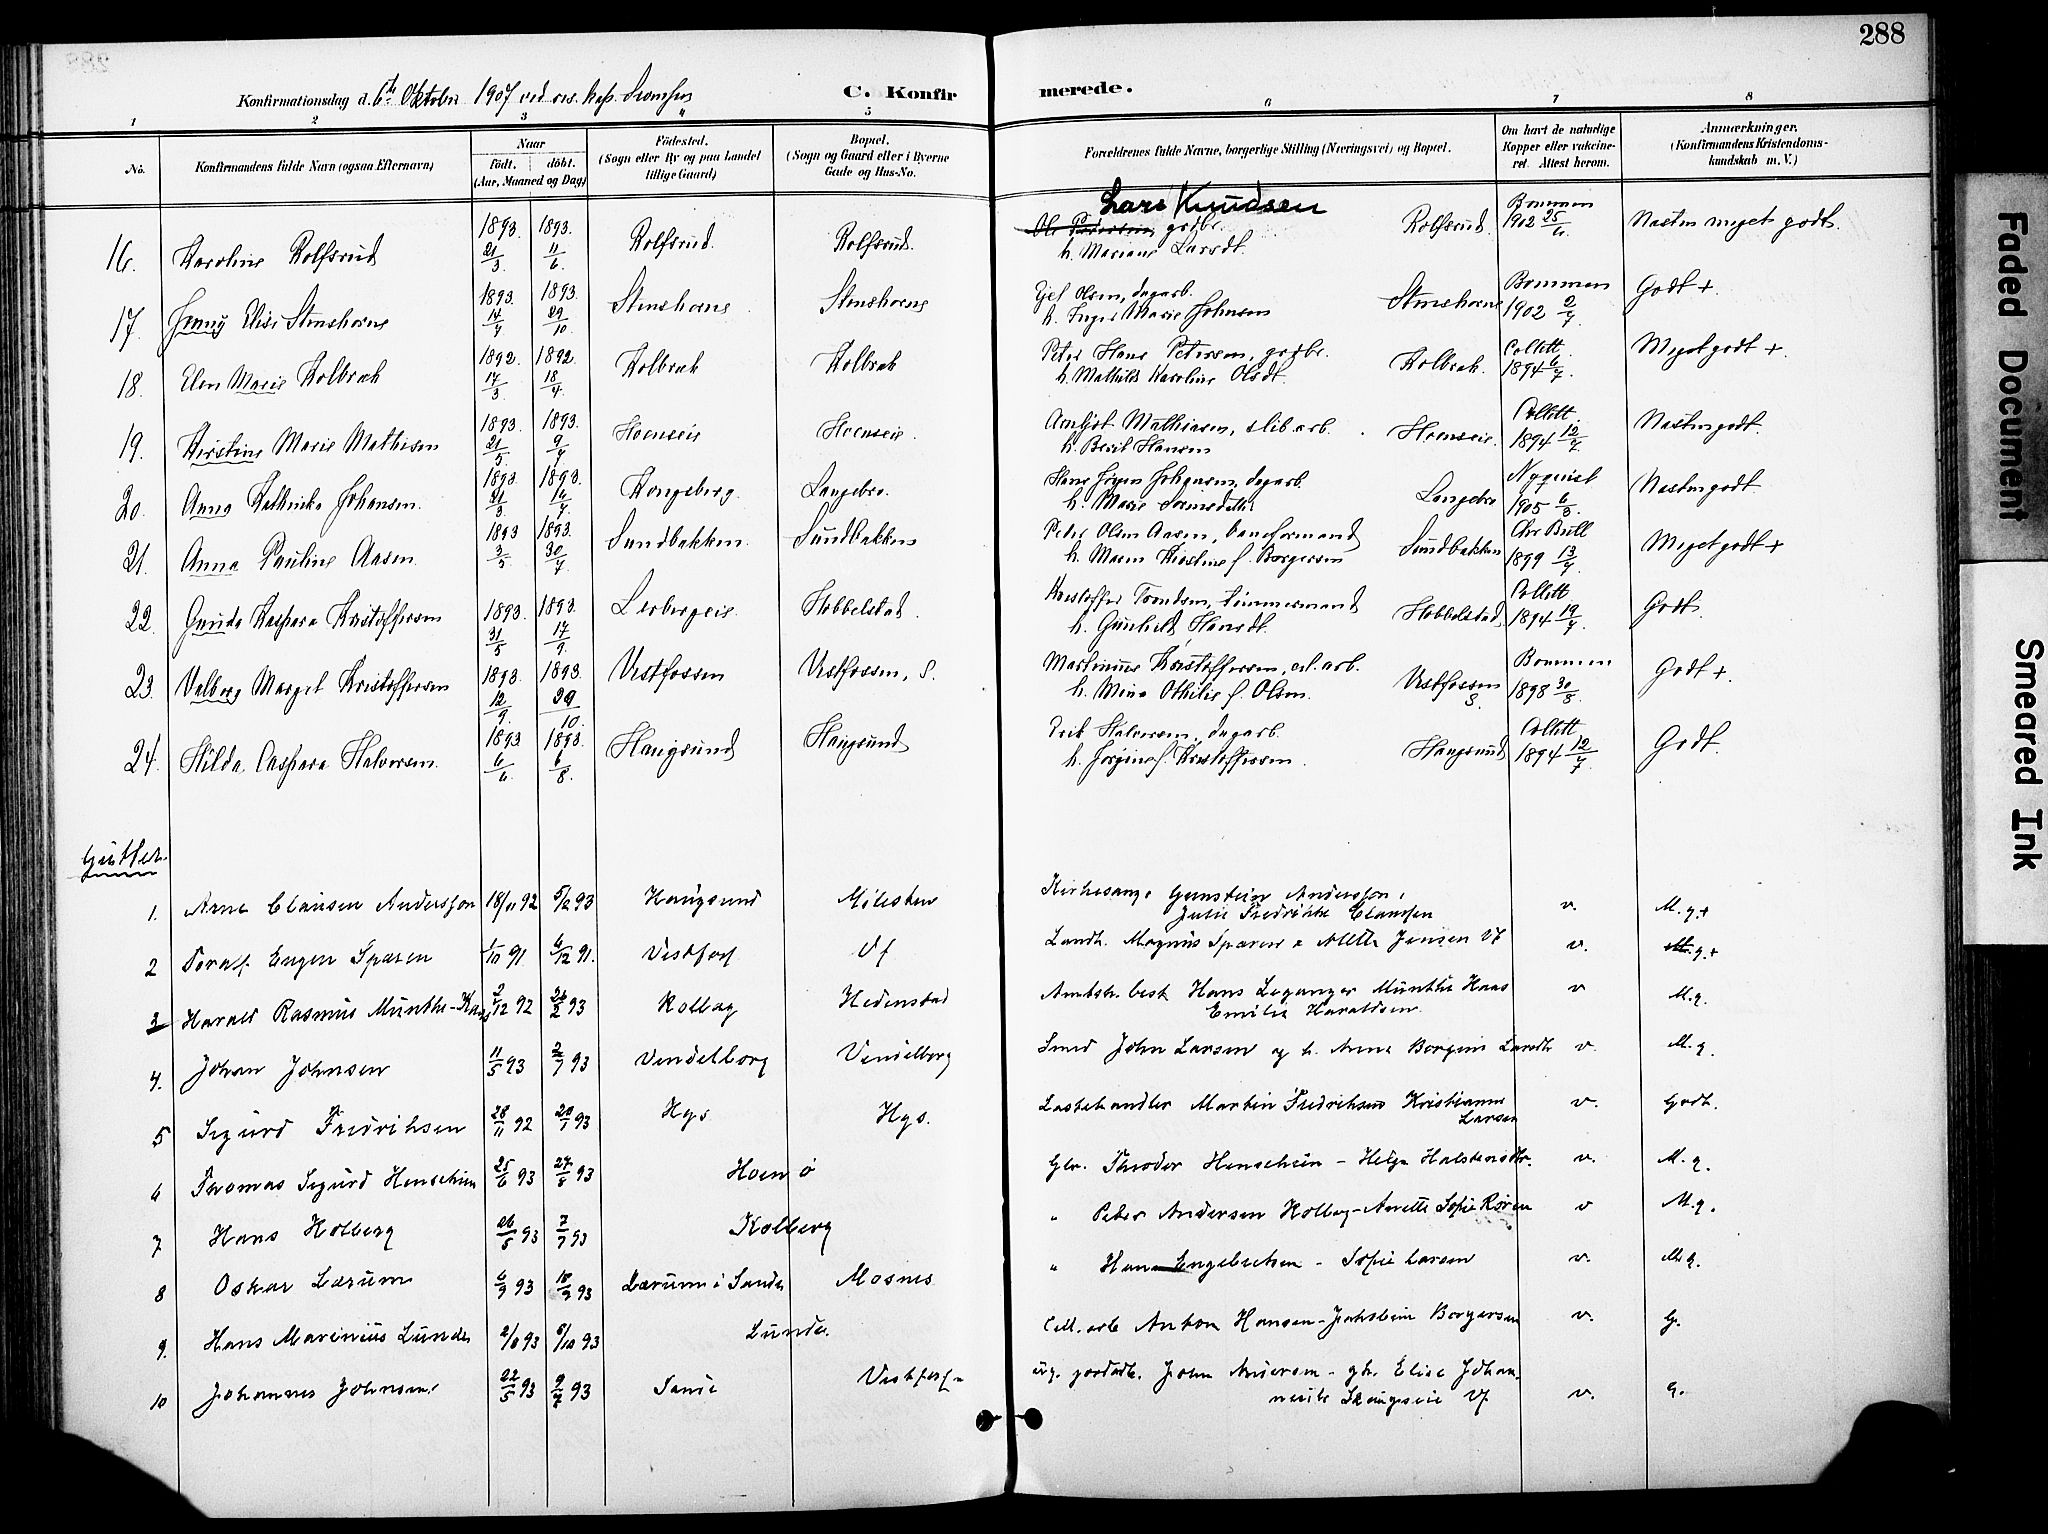 288
Konfirmationsdag d. 6te Oktober 1907 ved res. kap.
C. Konfirmerede.
1 2 3 4 5 6 7 8
No.
Konfirmandens fulde Navn (ogsaa Efternavn)
Naar
födt. döbt.
(Aar, Maaned og Dag)
Födested.
(Sogn eller By og paa Landet tillige Gaard)
Bopæl.
(Sogn og Gaard eller i Byerne Gade og Hus-No.
Forældrenes fulde Navne, borgerlige Stilling (Næringsvei) og Bopæl.
Om havt de naturlige Kopper eller vakcineret. Attest herom.
Anmærkninger.
(Konfirmandens Kristendomskundskab m. V.)
Lars Knudsen
16. Karoline Rolfsrud 1893 21/3 1893 11/6 Rolfsrud. Rolfsrud. Ole Pedersen, grdbr. h. Mariane Larsdt. Rolfsrud. Bommen 1902 25/6 Næsten meget godt.
17. Jenny Elise Stenshorne 1893 14/7 1893 29/10 Stenshorne Stenshorne Ejel Olsen, dagarb. h. Inger Marie Johnsen Stenshorne Bommen 1902 2/7 Godt +
18. Elen Marie Kolbræk 1892 17/3 1892 18/4 Kolbræk Kolbræk Peter Hans Petersen, grdbr. h. Mathilde Karoline Olsdt. Kolbræk. Collett 1894 6/7 Meget godt +
19. Kirstine Marie Mathisen 1893 21/5 1893 9/7 Hoenseie Hoenseie. Arnljot Mathiasen, slib.arb. h. Berit Hansen Hoenseie. Collett 1894 12/7 Næsten godt.
20. Anna Kathinka Johansen. 1893 21/3 1893 16/7 Kongsberg. Langebro. Hans Jörgen Johansen, dagarb. h. Marie Langebro Nyquist 1905 6/8 Næsten godt
21. Anna Pauline Aasen 1893 3/5 1893 30/7 Sundbakken Sundbakken Peter Olsen Aasen, baneformand h. Maren Kirstine f. Borgersen Sundbakken Chr Bull 1899 13/7 Meget godt +
22. Gunda Kaspara Kristoffersen 1893 31/5 1893 17/9 Lerbergeie. Hobbelstad. Kristoffer Trondsen, tömmermand h. Gunhild Hansdt. Hobbelstad Collett 1894 19/7 Godt.
23. Valborg Margit Kristoffersen 1893 12/9 1893 29/10 Vestfossen Vestfossen, S. Martinius Kristoffersen, cel.arb. h. Mina Othilie f. Olsen. Vestfossen S. Bommen 1898 30/8 Godt +
24. Hilda Caspara Halvorsen 1893 6/6 1893 6/8 Haugsund Haugsund Erik Halvorsen, dagarb. h. Jörgine f. Kristoffersen. Haugsund Collett 1894 12/7 Godt.
Gutter
1. Arne Clausen Anderssen 18/11 92 5/2 93 Haugsund Milesten Kirkesang. Gunstein Anderssen, Julie Fredrikke Claussen v. M.g.+
2 Toralf Eugen Sparen 1/10 91 6/12 91. Vestfos Vf Landh. Magnus Sparen o Mette Jensen Vf v. M.g.+
3 Harald Rasmus Munthe-Kaas 2/12 92 26/2 93 Kolberg Hedenstad Amtsk. best Hans Leganger Munthe Kaas Emilie Haraldsen v M.g.
4. Johan Johnsen 11/5 93 2/7 93 Vendelborg Vendelborg Smed John Larsen og h. Anne Borgine Larsdt v. M.g.
5 Sigurd Fredriksen 28/11 92 20/1 93 Hgs Hgs. Lastehandler Martin Fredriksen Kristianne Larsen v. Godt.
6 Thomas Sigurd Henschien 25/6 93 27/8 93 Hoen ø Gbr. Theodor Henschien - Helga Halstensdtr. v. M.g.
7 Hans Holberg 26/5 93 7/7 93 Kolberg " Peter Andersen Kolberg - Anette Sofie Røren v M.g.
8 Oskar Lærum 6/7 93 10/9 93 Lærum i Sande Mosnes " Hans Engebretsen - Sofie Larsen v. M.g.
9. Hans Marinius Lunde 2/8 93 8/10 93 Lunde. Cell. arb Anton Hansen - Borgersen v. G.
10 Johannes Johnsen. 22/5 93 9/7 93 Sande Vestfos. ug. John Andersen - gh. Elise Johannesdtr Skaugseie Vf. v. G.
Faded Document
Smeared Ink